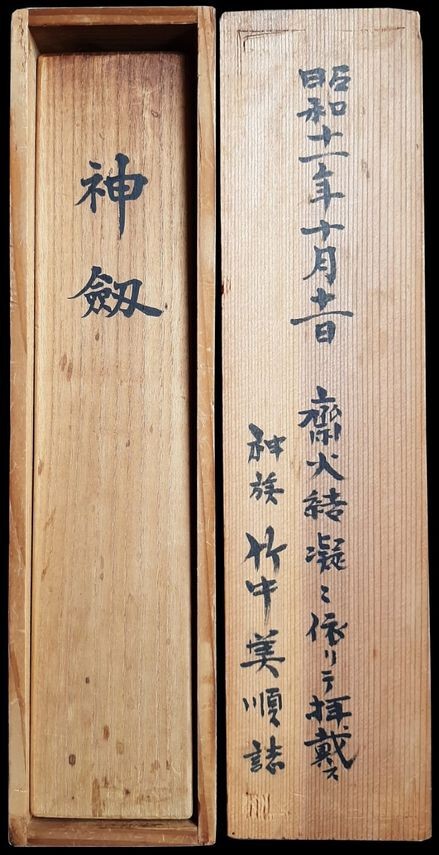 神劔
昭和十一年十月十一日 齋火結凝ニ依リテ拝戴ス
神族 竹中美順誌